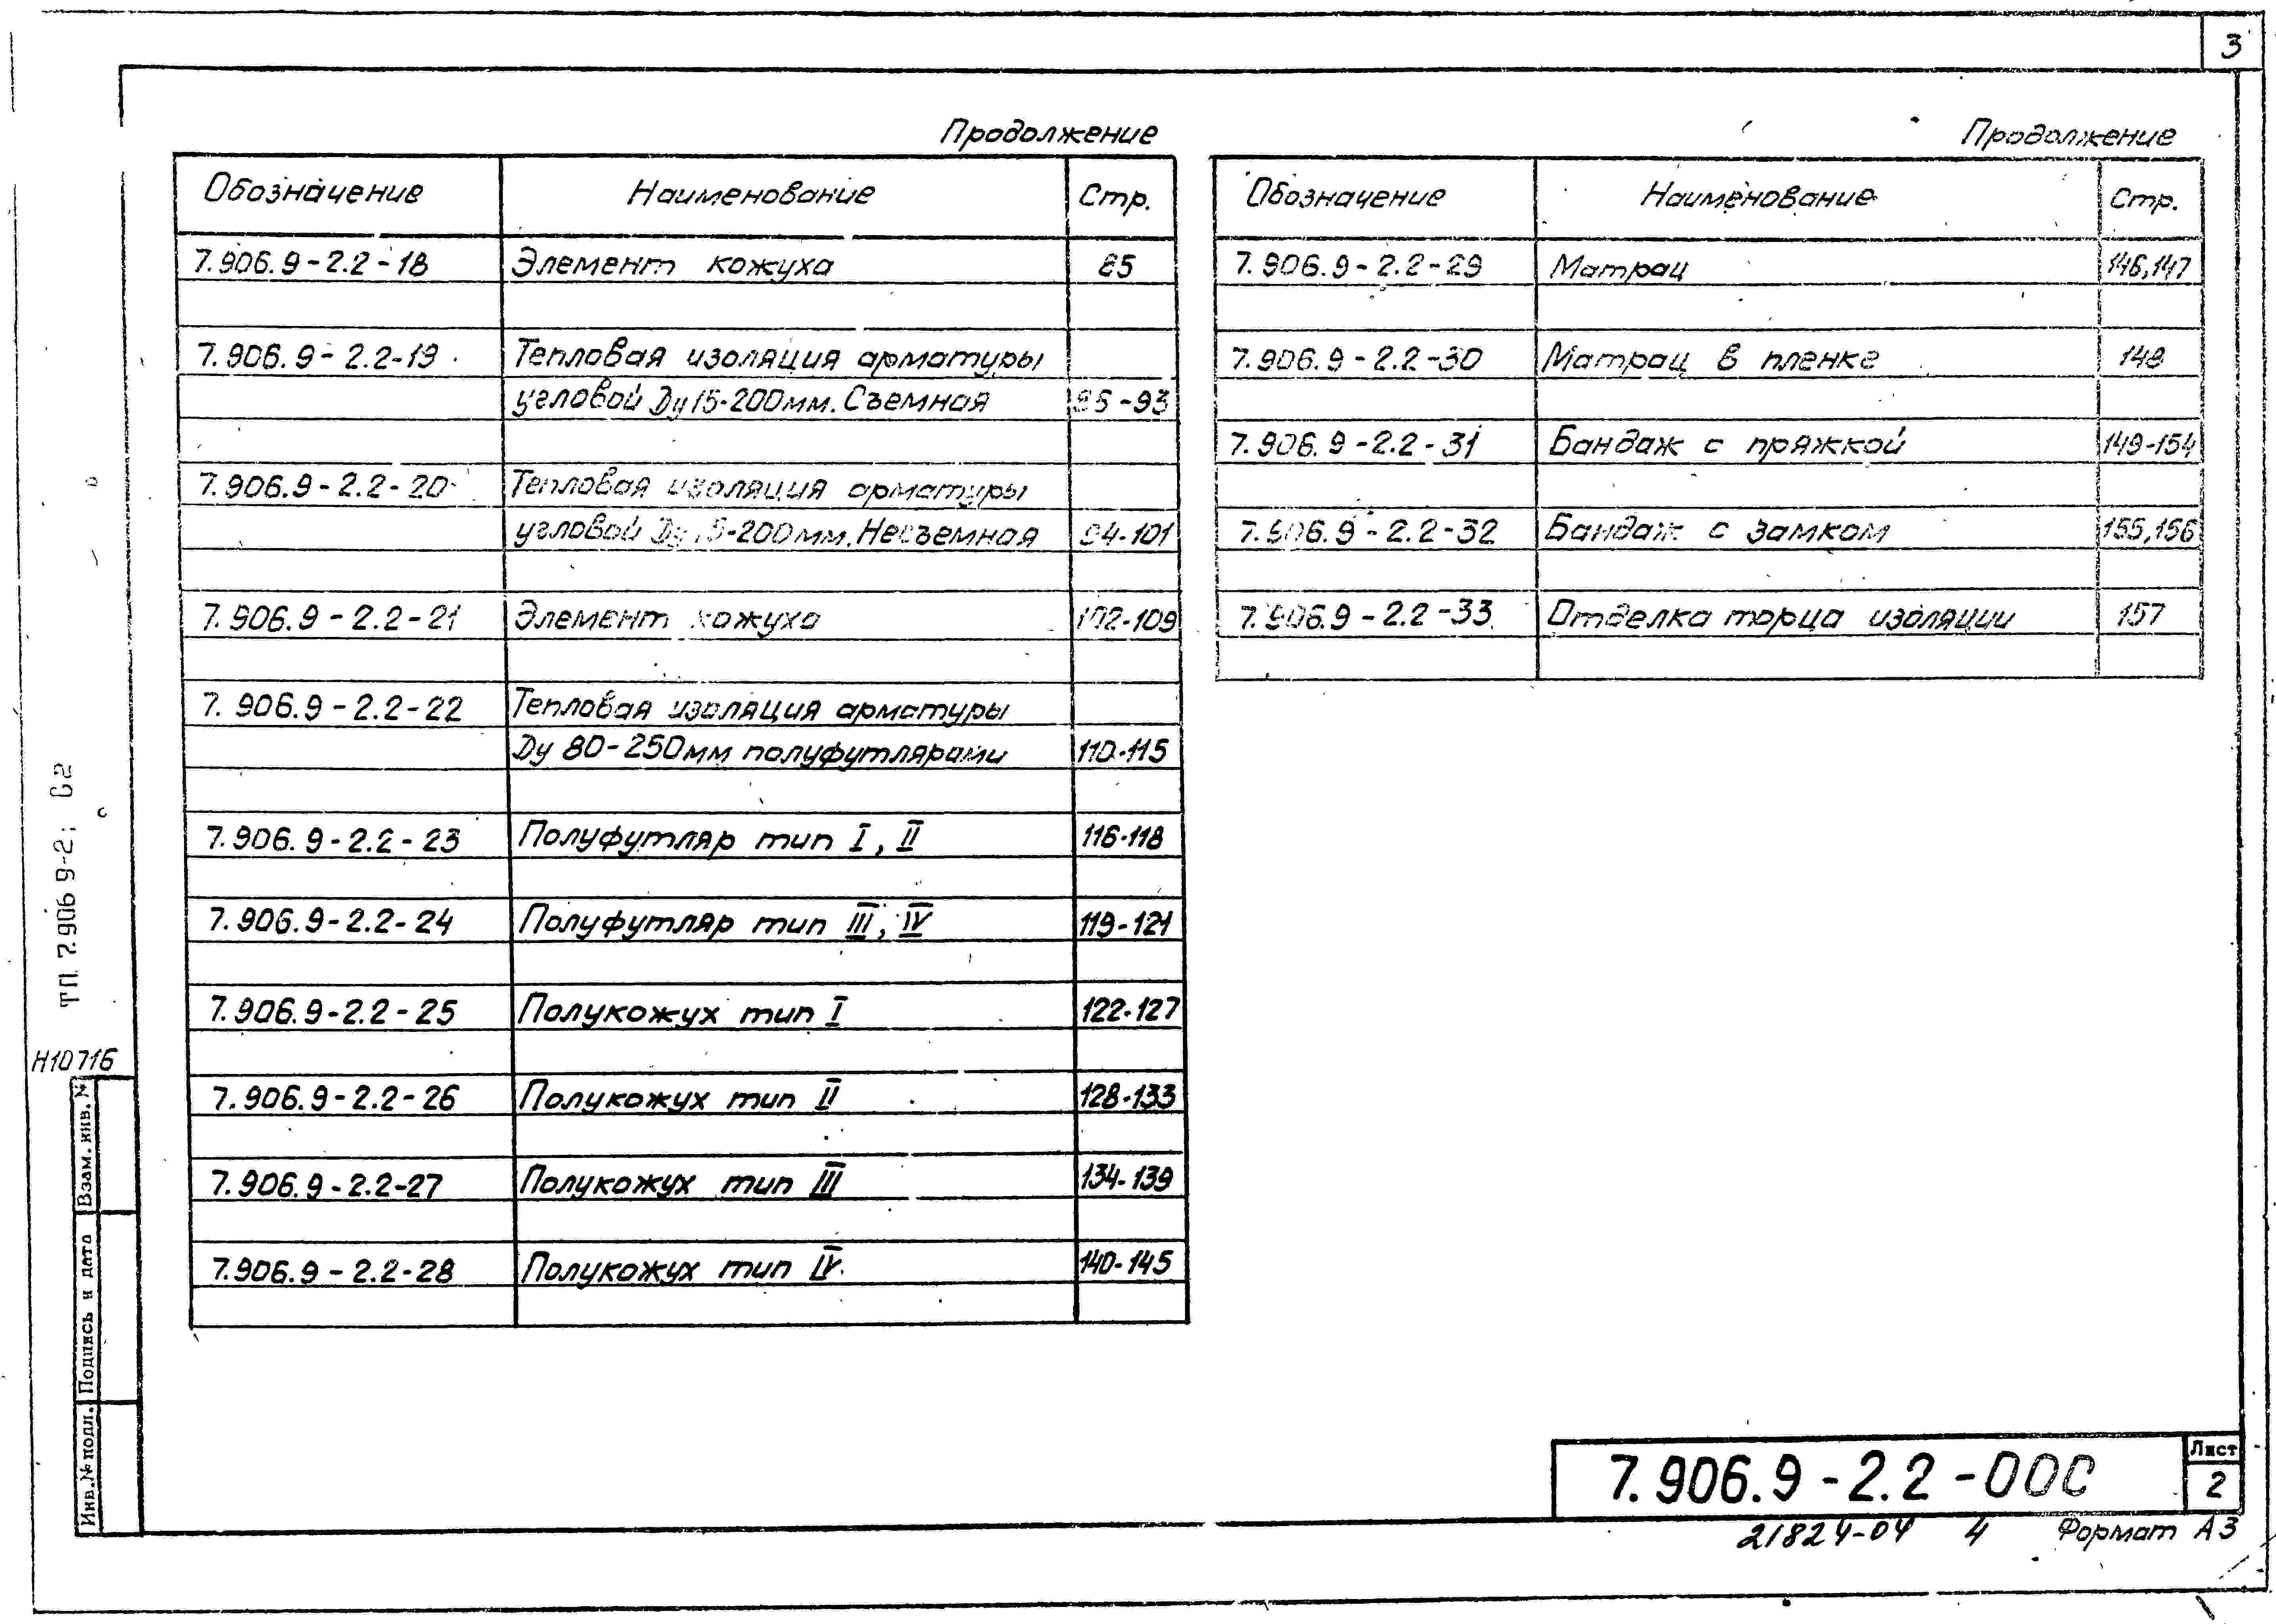 3
Продолжение
Обозначение Наименование Стр.
7.906.9-2.2-18 Элемент кожуха 85
7.906.9-2.2-19 Тепловая изоляция арматуры
угловой Ду 15-200мм. Съемная 86-93
7.906.9-2.2-20 Тепловая изоляция арматуры
угловой Ду 15-200мм. Несъемная 94-101
7.906.9-2.2-21 Элемент кожуха 102-109
7.906.9-2.2-22 Тепловая изоляция арматуры
Ду 80-250мм полуфутлярами 110-115
7.906.9-2.2-23 Полуфутляр тип I, II 116-118
7.906.9-2.2-24 Полуфутляр тип III, IV 119-121
7.906.9-2.2-25 Полукожух тип I 122-127
7.906.9-2.2-26 Полукожух тип II 128-133
7.906.9-2.2-27 Полукожух тип III 134-139
7.906.9-2.2-28 Полукожух тип IV 140-145
Продолжение
Обозначение Наименование Стр.
7.906.9-2.2-29 Матрац 146,147
7.906.9-2.2-30 Матрац в пленке 148
7.906.9-2.2-31 Бандаж с пряжкой 149-154
7.906.9-2.2-32 Бандаж с замком 155,156
7.906.9-2.2-33 Отделка торца изоляции 157
ТП 7.906 9-2;
Н10716
Взам. инв. №
Подпись и дата
Инв. № подл.
7.906.9-2.2-00С
Лист
2
21824-04 4 Формат А3